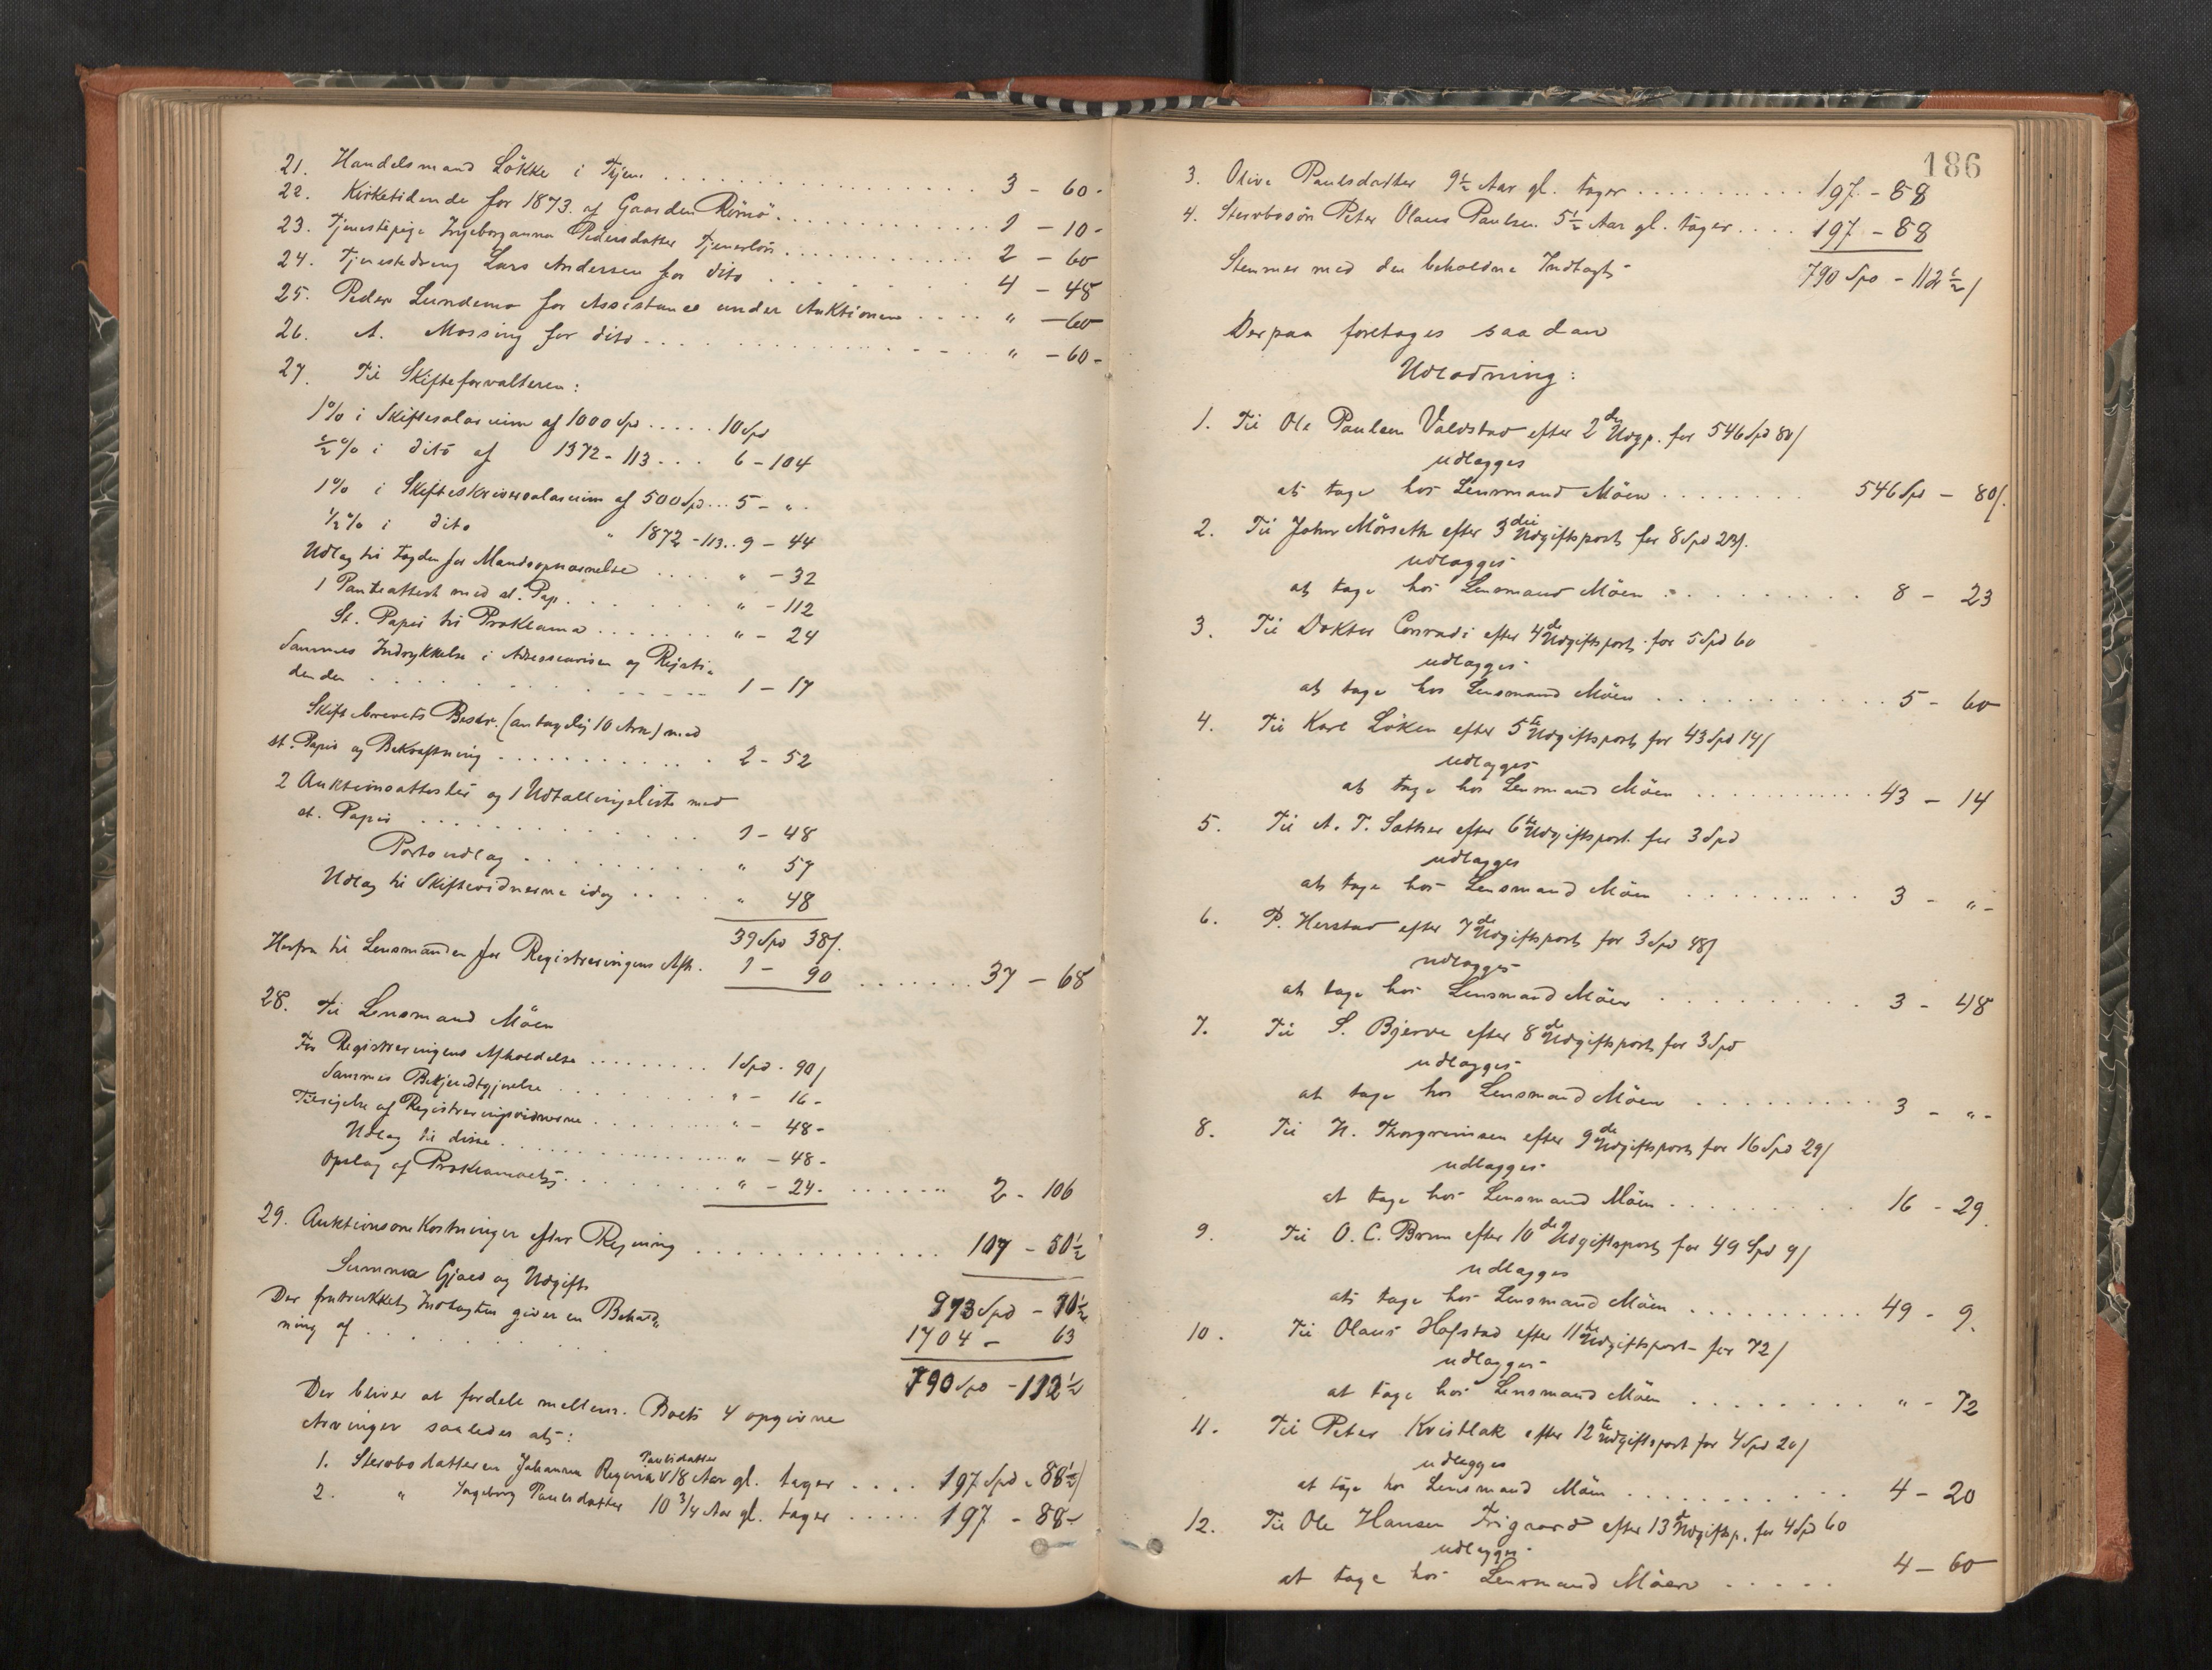 21. Handelsmand Lökke i Stjør. . . . 3 - 60 -
22. Kirketidende for 1873 af Gaarden Römö . . . . 1 - 10 -
23. Tjenestepige Ingeborganna Pedersdatter Tjenerlön . . . . 2 - 60
24. Tjenestedreng Lars Andersen for dito . . . . 4 - 48
25. Peder Lundemo for Assistance under Auktionen . . . . " - 60
26. A. Mossing for dito . . . . " - 60 -
27. Til Skifteforvalteren:
1% i Skiftesalarium af 1000 Spd . . . . . 10 Spd
½% i dito af 1372 - 113 . . . 6 - 104
1% i Skifteskriversalarium af 500 Spd . . . 5 - " -
½% i dito " 1872 - 113 . . 9 - 44
Udlag til Fogden for Mandsopnævnelse . . . . " - 32
1 Panteattest med st. Pap. . . . . " - 112
St. Papir til Proklama . . . . " - 24
Sammes Indrykkelse i Adresseavisen og Rigsti-
denden . . . . 1 - 17
Skiftebrevets Beskr. (antagelig 10 Ark) med
st. Papir og Bekræftning . . . . 2 - 52
2 Auktionsattester og 1 Udtællingsliste med
st. Papir . . . . 1 - 48
Portoudlag . . . . " 57
Udlag til Skiftevidnerne idag . . . . " 48
39 Spd 38/.
Herfra til Lensmanden for Registreringens Afh. 1 - 90 . . . . 37 - 68
28. Til Lensmand Möen
For Registreringens Afholdelse . . . . 1 Spd - 90/
Sammes Bekjendtgjørelse . . . . " - 16 -
Tilsigelse af Registreringsvidnerne . . . . " - 48 -
Udlag til disse . . . . " - 48 -
Opslag af Proklamaets . . . . " - 24 - . . . . 2 - 106
29. Auktionsomkostninger efter Regning . . . . 107 - 50½
Summa Gjæld og Udgift 913 Spd - 70½
Der fratrukket Indtægten giver en Behold-
ning af . . . . 1704 - 63
790 Spd - 112½
Der bliver at fordele mellem Boets 4 opgivne
Arvinger saaledes at:
1. Stervbodatteren Johanna Regina Paulsdatter 18 Aar gl. tager . . . . 197 Spd - 88½/
2. " Ingeborg Paulsdatter 10 3/4 Aar gl. tager . . . . . 197 - 88 -
186
3. Oliva Paulsdatter 9½ Aar gl. tager . . . . 197 - 88
4. Stervbosön Peter Olaus Paulsen 5½ Aar gl. tager . . . . 197 - 88
Stemmer med den beholdne Indtægt - 790 Spd - 112½/
Derpaa foretages saadan
Udlodning:
1. Til Ole Paulsen Valdstad efter 2den Udgp. for 546 Spd 80/
udlægges
at tage hos Lensmand Möen . . . . 546 Spd - 80/.
2. Til John Mörseth efter 3die Udgiftspost for 8 Spd 23/.
udlægges
at tage hos Lensmand Möen . . . . 8 - 23
3. Til Doktor Conradi efter 4de Udgiftspost for 5 Spd 60
udlægges
at tage hos Lensmand Möen . . . . 5 - 60
4. Til Karl Löken efter 5te Udgiftspost for 43 Spd 14/
udlægges
at tage hos Lensmand Möen . . . . 43 - 14
5. Til A. T. Sæther efter 6te Udgiftspost for 3 Spd
udlægges
at tage hos Lensmand Möen . . . . 3 - " -
6. P. Herstad efter 7de Udgiftspost for 3 Spd 48/
udlægges
at tage hos Lensmand Möen . . . . 3 - 48
7. Til S. Bjerve efter 8de Udgiftspost for 3 Spd
udlægges
at tage hos Lensmand Möen . . . . 3 - " -
8. Til N. Thorgrimsen efter 9de Udgiftspost for 16 Spd 29/
udlægges
at tage hos Lensmand Möen . . . . 16 - 29.
9. Til O. C. Brun efter 10de Udgiftspost for 49 Spd 9/
udlægges
at tage hos Lensmand Möen . . . . 49 - 9.
10. Til Olaus Hofstad efter 11te Udgiftspost for 72/
udlægges
at tage hos Lensmand Möen . . . . " - 72
11. Til Peter Kvistlak efter 12te Udgiftspost for 4 Spd 20/
udlægges
at tage hos Lensmand Möen . . . . 4 - 20
12. Til Ole Hansen Trigaard efter 13te Udgiftsp. for 4 Spd 60
udlægges
at tage hos Lensmand Möen . . . . . 4 - 60